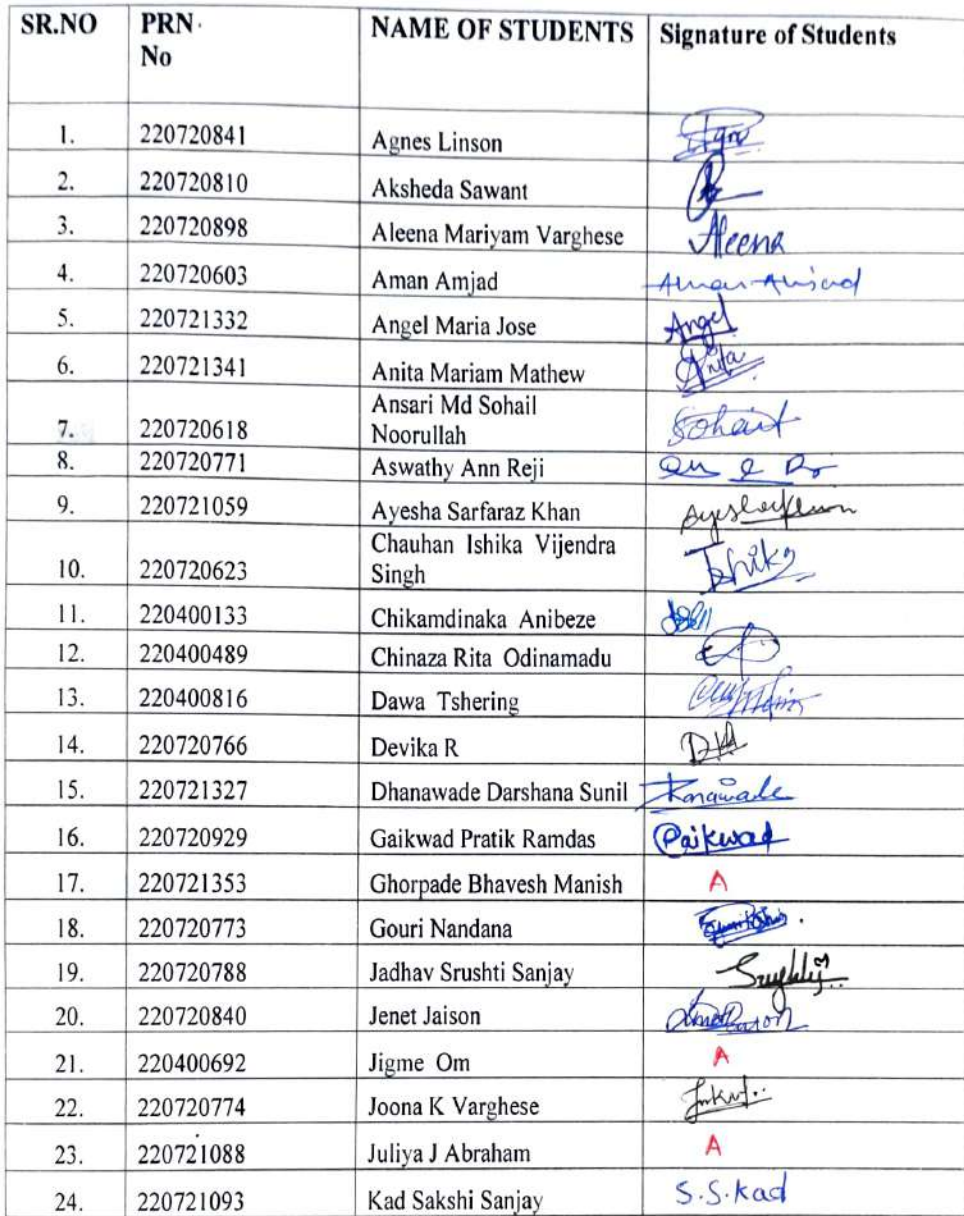 SR.NO PRN NAME OF STUDENTS Signature of Students
No
1. 220720841 Agnes Linson
2. 220720810 Aksheda Sawant
3. 220720898 Aleena Mariyam Varghese Aleena
4. 220720603 Aman Amjad Aman Amjad
5. 220721332 Angel Maria Jose Angel
6. 220721341 Anita Mariam Mathew Anita
Ansari Md Sohail
7. 220720618 Noorullah Sohail
8. 220720771 Aswathy Ann Reji
9. 220721059 Ayesha Sarfaraz Khan Ayeshakhan
Chauhan Ishika Vijendra
10. 220720623 Singh Ishika
11. 220400133 Chikamdinaka Anibeze
12. 220400489 Chinaza Rita Odinamadu
13. 220400816 Dawa Tshering
14. 220720766 Devika R
15. 220721327 Dhanawade Darshana Sunil
16. 220720929 Gaikwad Pratik Ramdas Gaikwad
17. 220721353 Ghorpade Bhavesh Manish A
18. 220720773 Gouri Nandana
19. 220720788 Jadhav Srushti Sanjay
20. 220720840 Jenet Jaison
21. 220400692 Jigme Om A
22. 220720774 Joona K Varghese
23. 220721088 Juliya J Abraham A
24. 220721093 Kad Sakshi Sanjay S.S.Kad